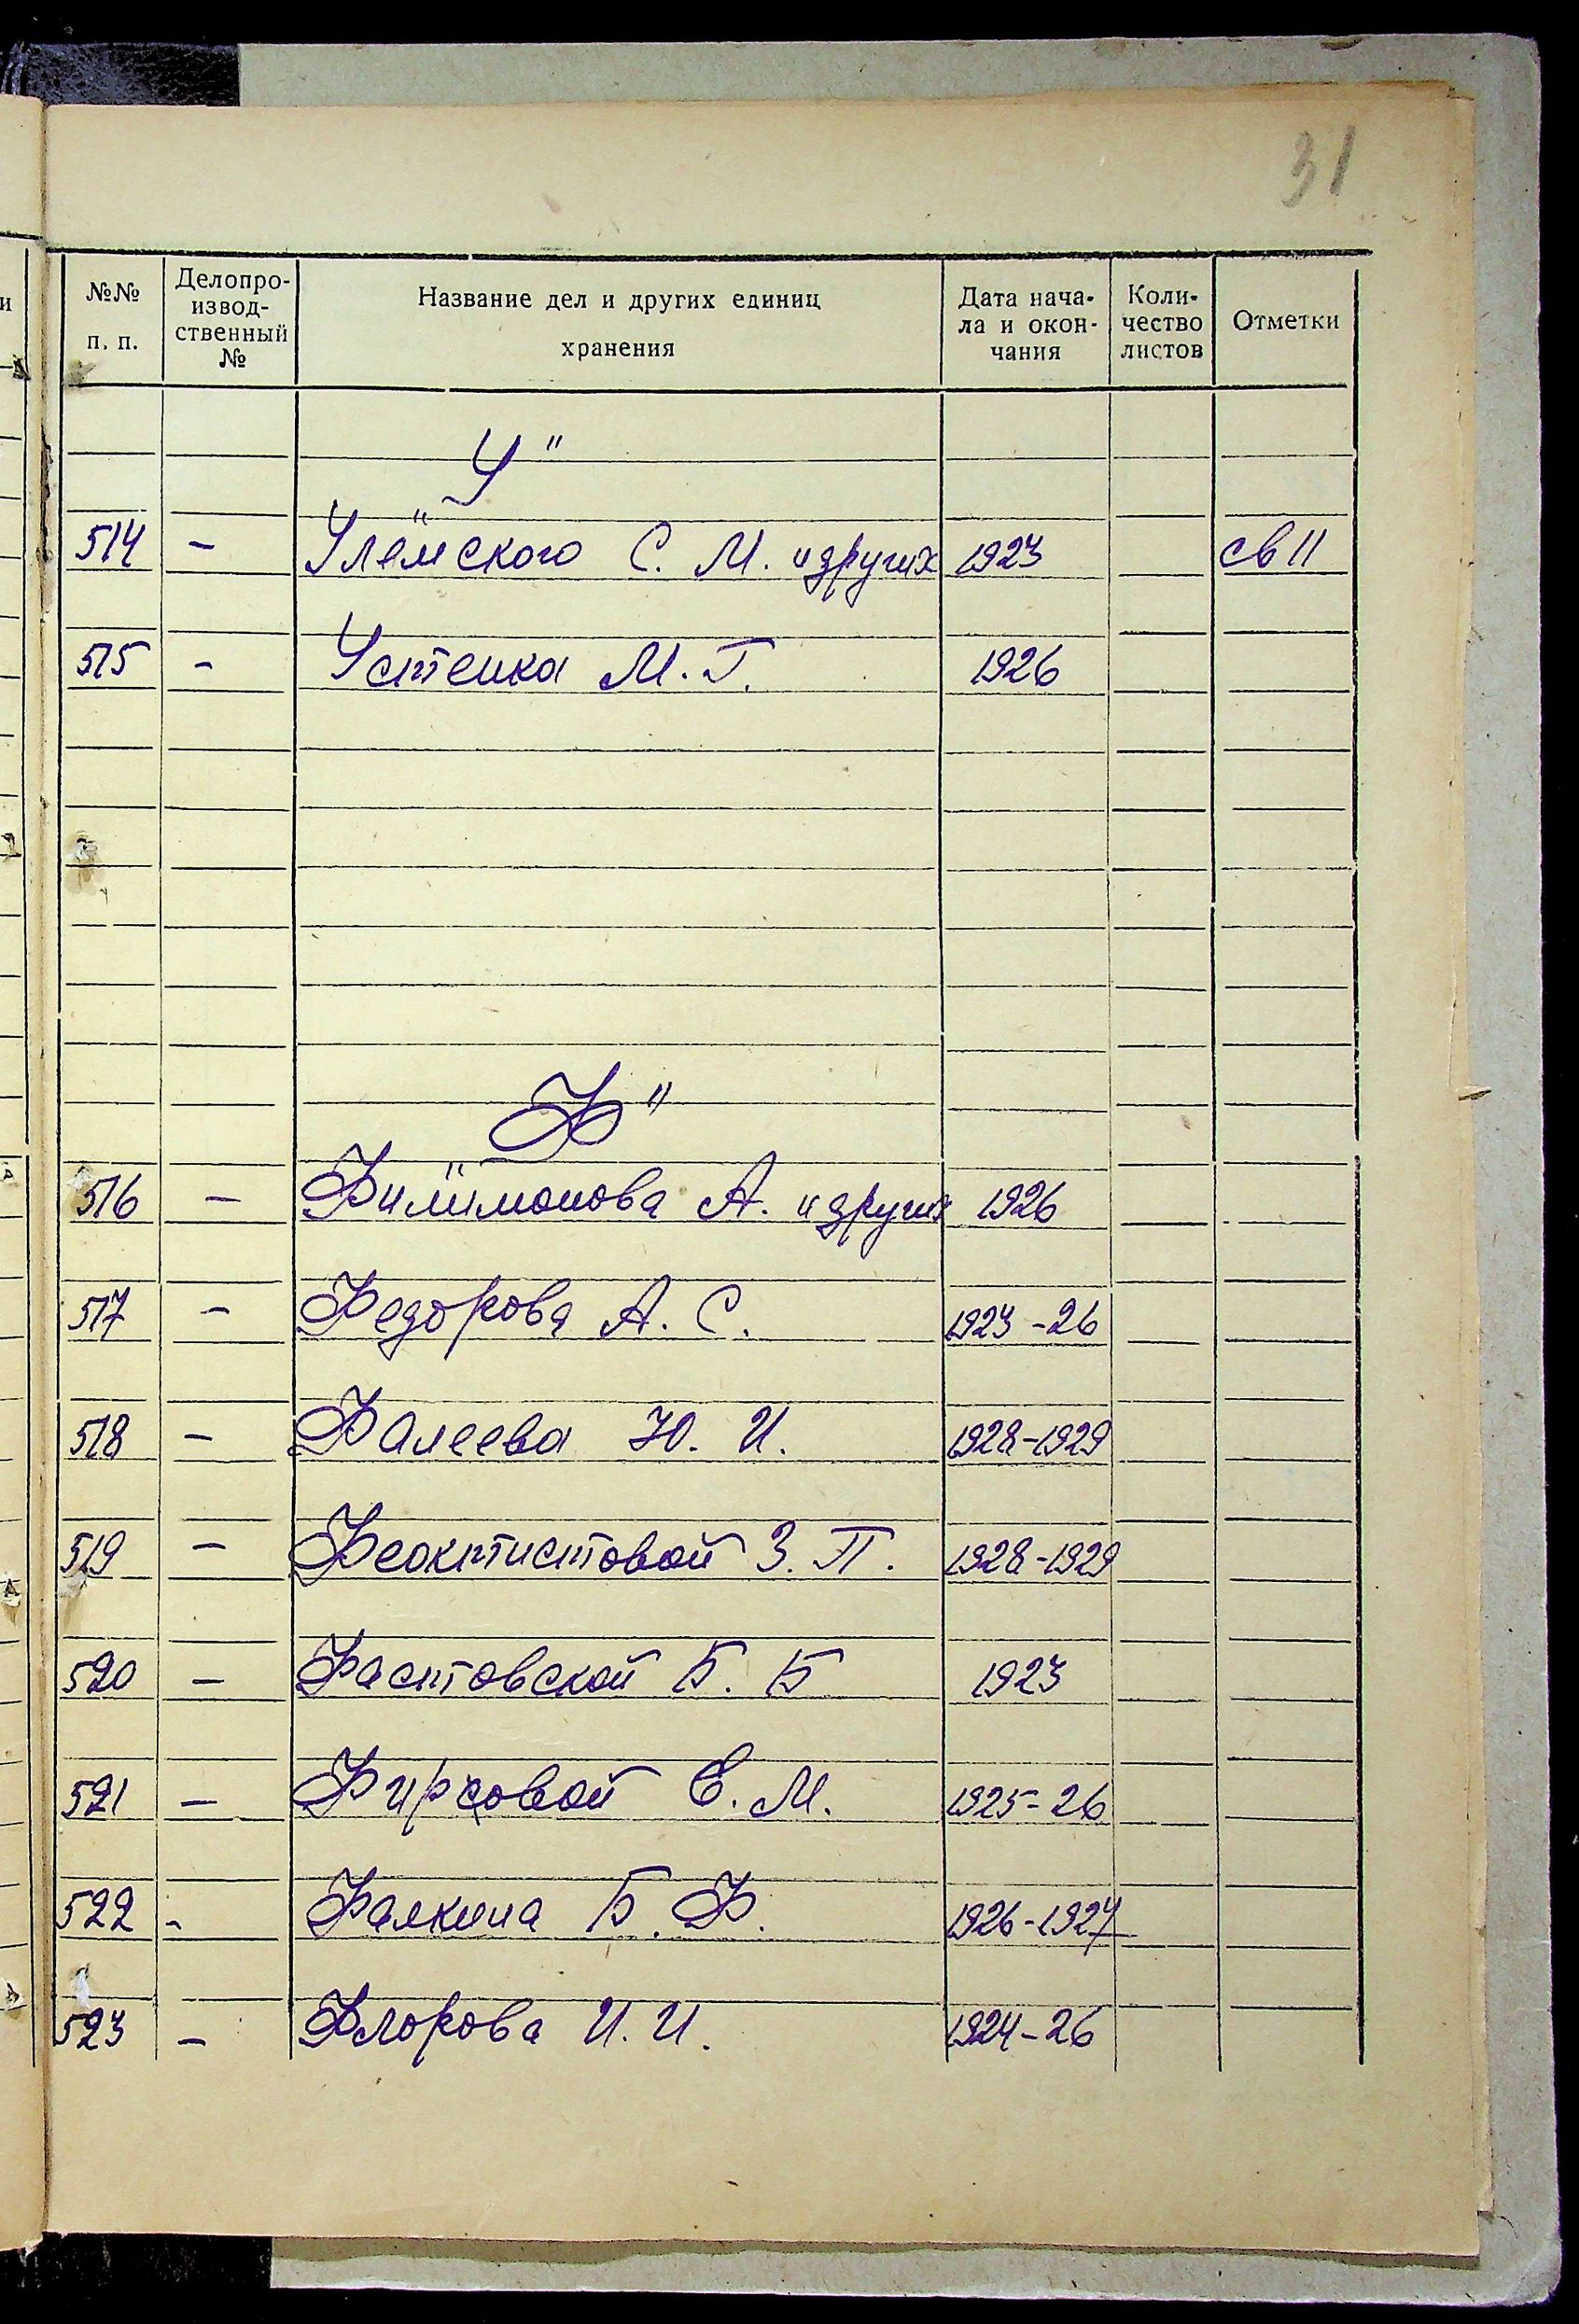 31
№№ п. п. Делопро-извод-ственный № Название дел и других единиц хранения Дата нача-ла и окон-чания Коли-чество листов Отметки
„У"
514 - Улемского С. М. и других 1923 св 11
515 - Устенка М. Г. 1926
„Ф"
516 - Филимонова А. и других 1926
517 - Федорова А. С. 1923-26
518 - Фалеева Ю. И. 1928-1929
519 - Феоктистовой З. П. 1928-1929
520 - Фастовской Б. Б 1923
521 - Фирсовой Е. М. 1925-26
522 - Фалкина Б. Ф. 1926-1927
523 - Флорова И. И. 1924-26